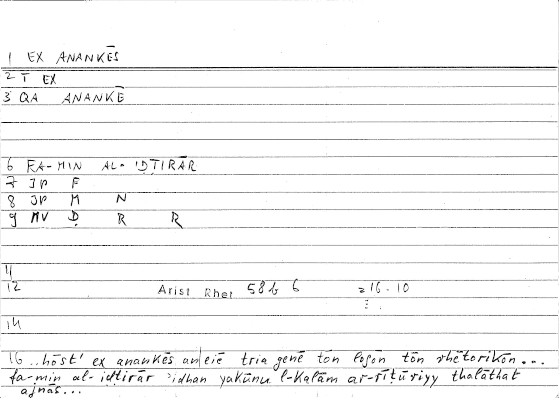 1 EX ANANKĒS
2 T EX
3 QA ANANKĒ
6 FA-MIN AL-ʾIḌṬIRĀR
7 JP F
8 JP M N
9 MV Ḍ R R
11
12 Arist Rhet 58b 6 = 16.10
14
16 ..hōst' ex anankēs an eiē tria genē tōn logōn tōn rhētorikōn...
fa-min al-idtirār ʾidhan yakūnu l-kalām ar-rīṭūriyy thalāthat
ajnās...